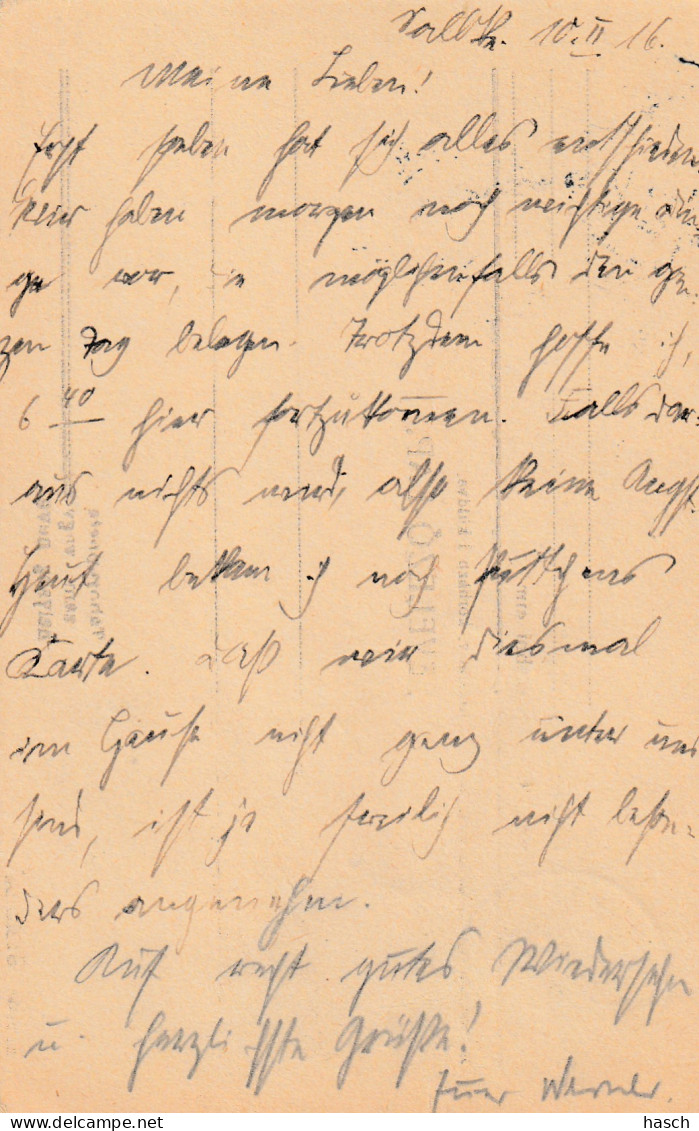 10.II 16.
Meine Lieben!
Erst soeben hat sich alles entschieden
Wir haben morgen noch wichtige Din
ge vor, die möglichenfalls den gan
zen Tag belegen. Trotzdem hoffe ich,
6 40 hier fortzukommen. Falls dar-
aus nichts wird, also keine Angst.
Heut bekam ich noch
Karte. Daß wir diesmal
im Hause nicht ganz unter uns
sind, ist ja freilich nicht beson-
ders angenehm.
Auf recht gutes Wiedersehn
u. herzlichste Grüße!
Euer Werner.
hasch